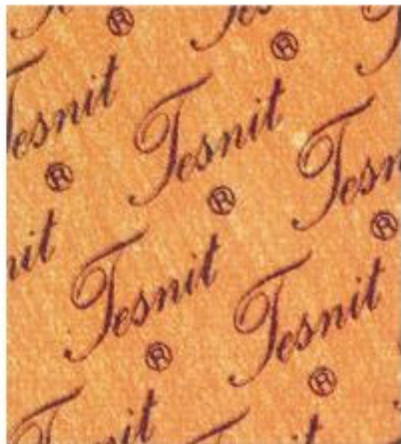 Tesnit
®
Tesnit
®
Tesnit
®
Tesnit
®
Tesnit
®